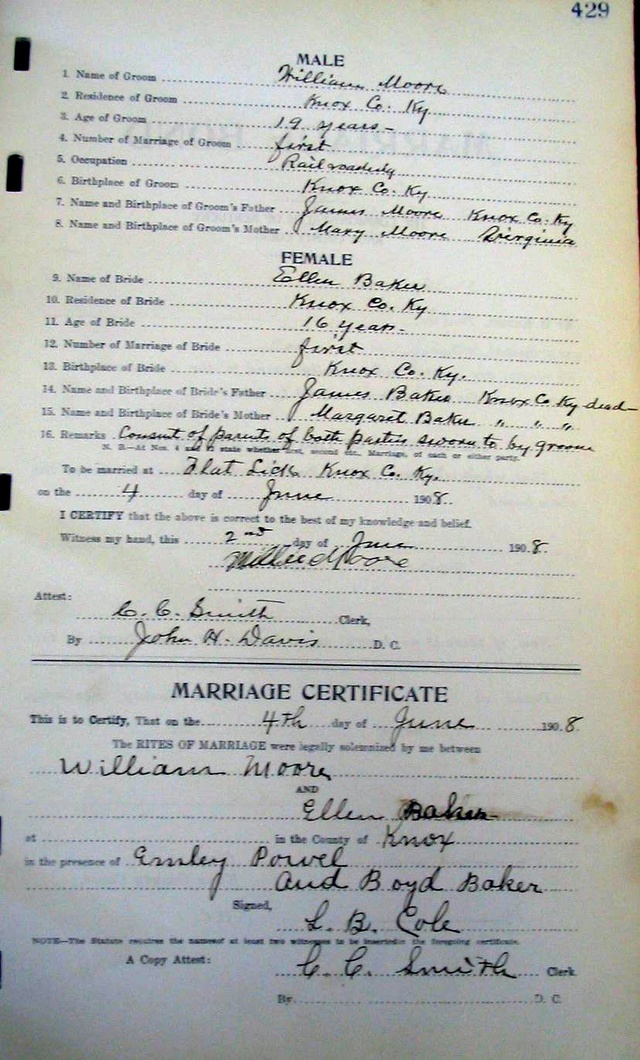 429
MALE
1. Name of Groom William Moore
2. Residence of Groom Knox Co. Ky
3. Age of Groom 19 years -
4. Number of Marriage of Groom first
5. Occupation Railroading
6. Birthplace of Groom Knox Co. Ky
7. Name and Birthplace of Groom's Father James Moore Knox Co. Ky
8. Name and Birthplace of Groom's Mother Mary Moore Virginia
FEMALE
9. Name of Bride Ellen Baker
10. Residence of Bride Knox Co. Ky
11. Age of Bride 16 years -
12. Number of Marriage of Bride first
13. Birthplace of Bride Knox Co. Ky.
14. Name and Birthplace of Bride's Father James Baker Knox Co Ky dead
15. Name and Birthplace of Bride's Mother Margaret Baker " " "
16. Remarks Consent of parents of both parties sworn to by groom
N. B.—At Nos. 4 and 12 state whether first, second etc., Marriage, of each or either party.
To be married at Flat Lick Knox Co. Ky.
on the 4 day of June 1908.
I CERTIFY that the above is correct to the best of my knowledge and belief.
Witness my hand, this 2nd day of June 1908.
Willie Moore
Attest:
C. C. Smith Clerk,
By John H. Davis D. C.
MARRIAGE CERTIFICATE
This is to Certify, That on the 4th day of June 1908.
The RITES OF MARRIAGE were legally solemnized by me between
William Moore
AND
Ellen Baker
at in the County of Knox
in the presence of Emley Powel
and Boyd Baker
Signed, L. B. Cole
NOTE—The Statute requires the names of at least two witnesses to be inserted in the foregoing certificate.
A Copy Attest: C. C. Smith Clerk
By D. C.